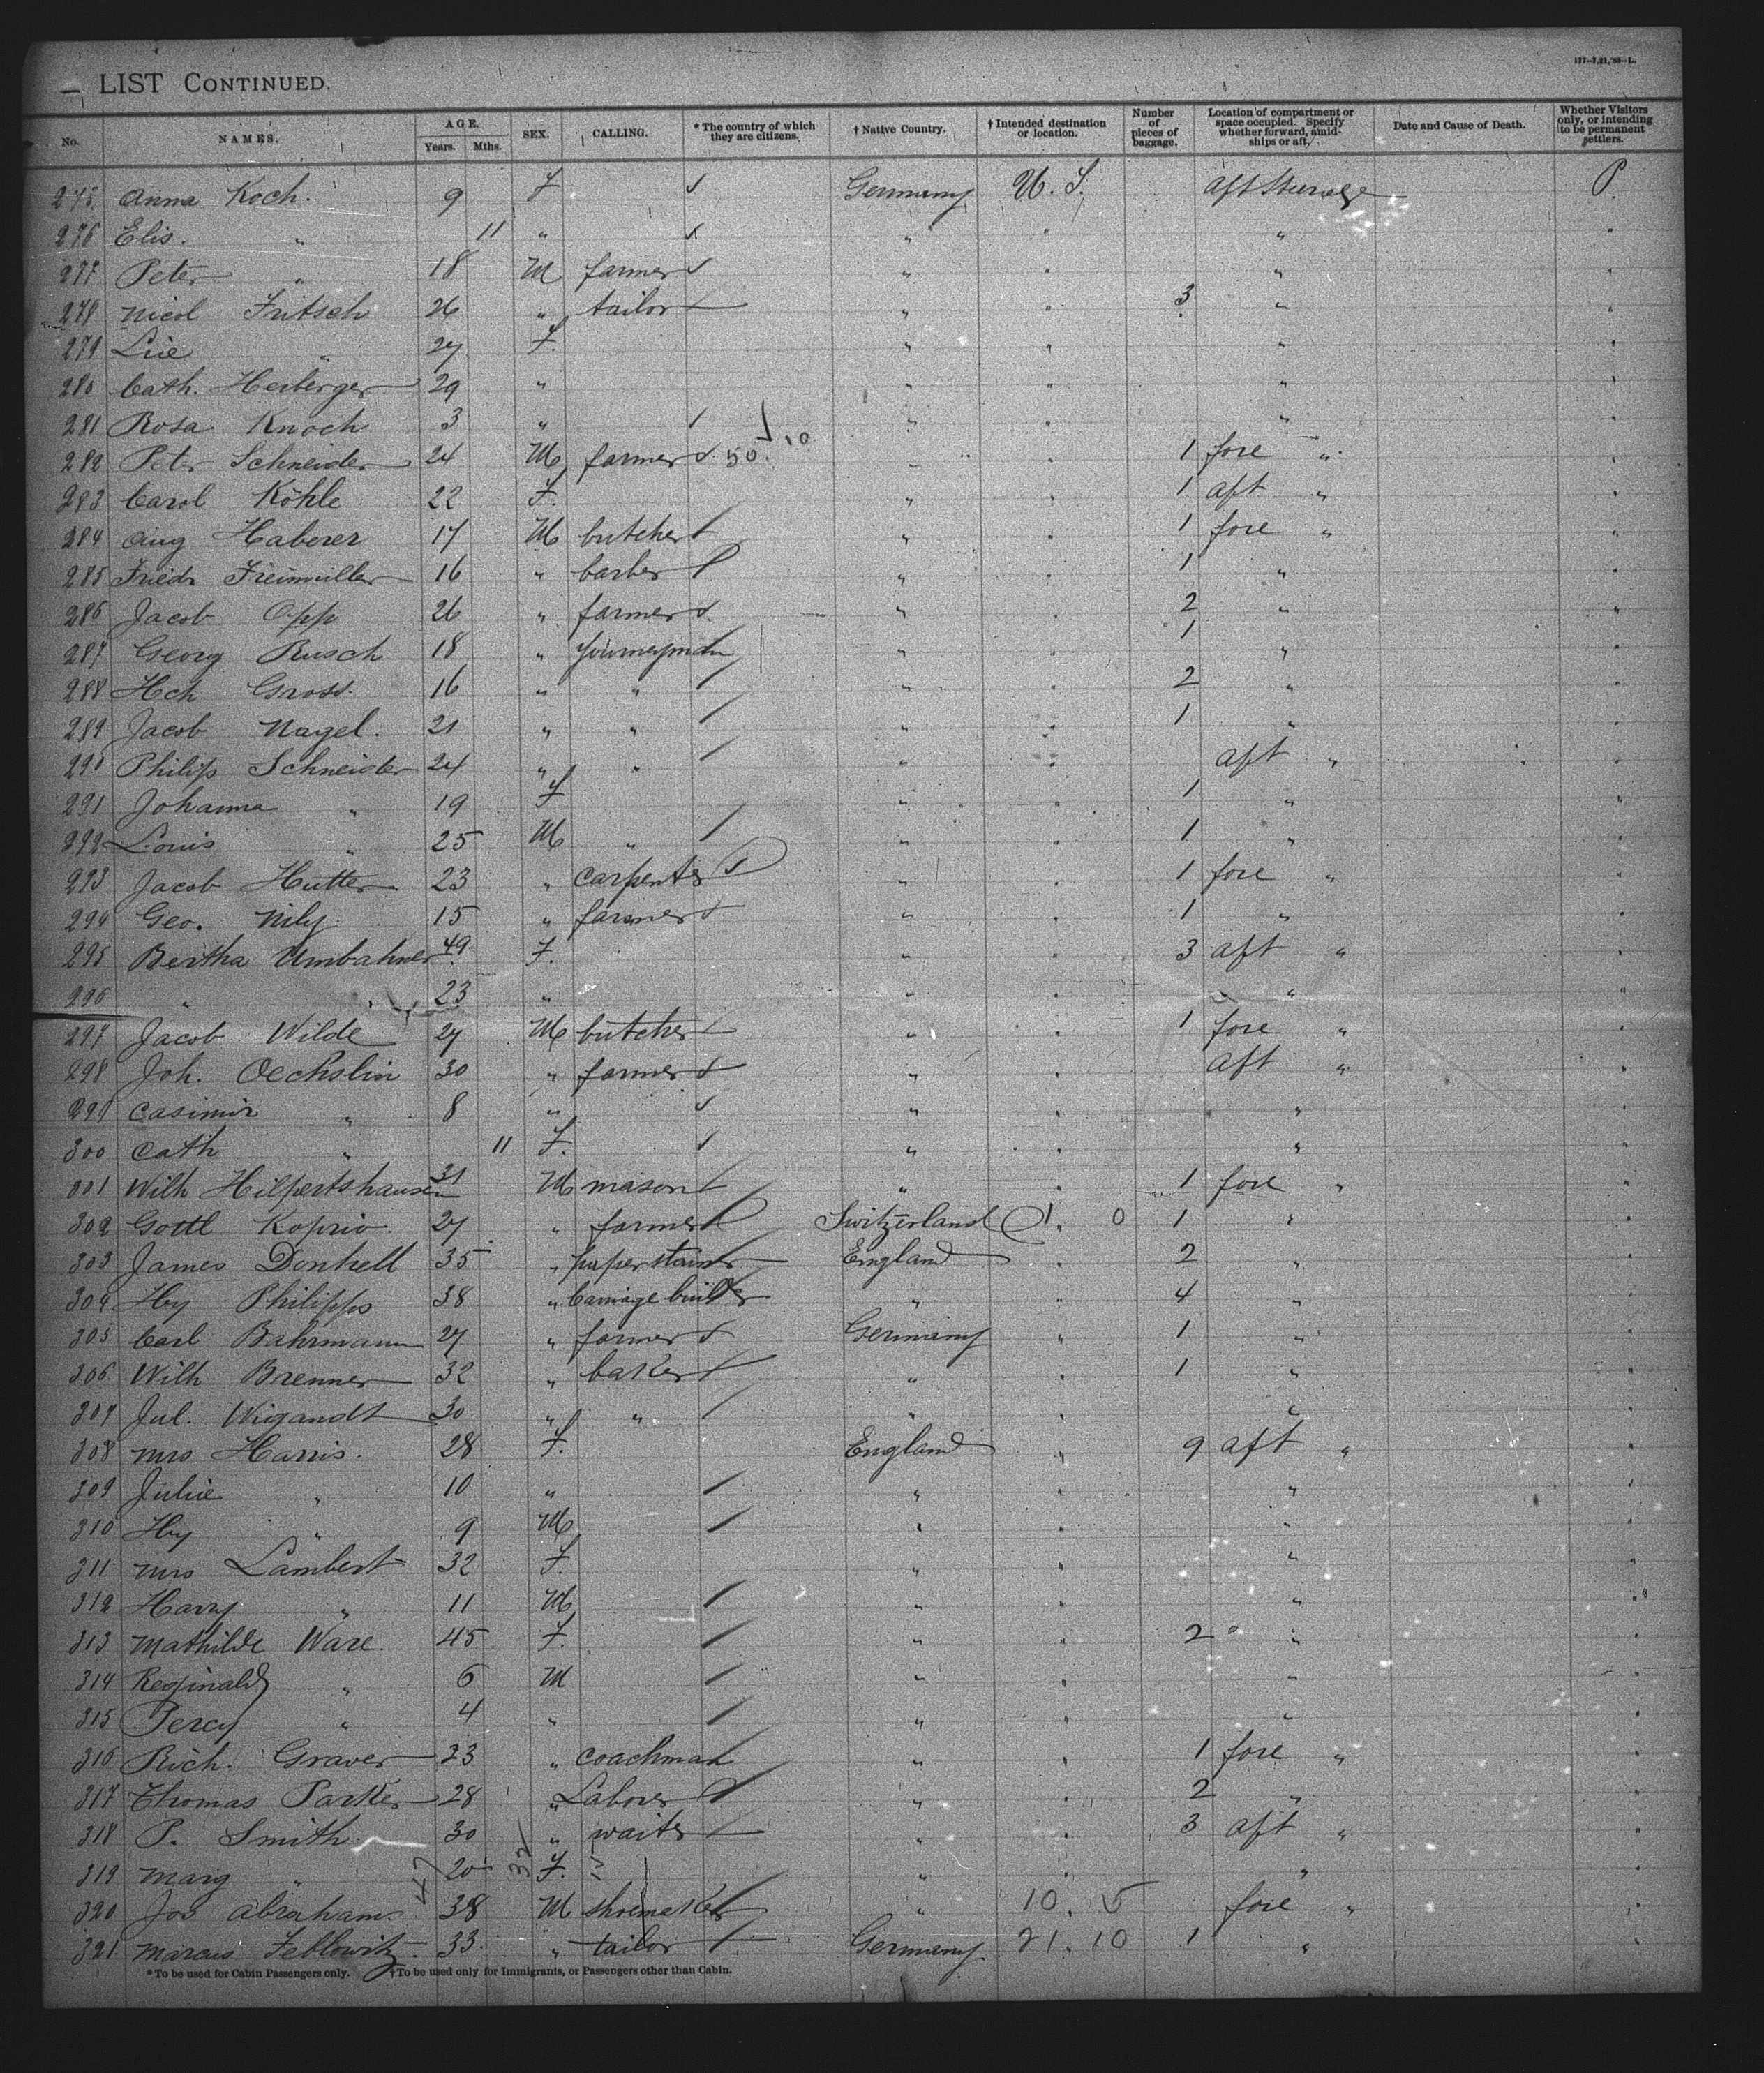 177—7,21,'88—L.
LIST CONTINUED.
No. NAMES. AGE. Years. Mths. SEX. CALLING. * The country of which they are citizens. † Native Country. † Intended destination or location. Number of pieces of baggage. Location of compartment or space occupied. Specify whether forward, amidships or aft. Date and Cause of Death. Whether Visitors only, or intending to be permanent settlers.
275 Anna Koch. 9 F Germany U. S. aft Steerage P.
276 Elis. " 11 " " " " "
277 Peter " 18 M farmer " " " "
278 Nicol Fritsch 26 " tailor " " 3 " "
279 " 27 F. " " " "
280 Cath. Herberger 29 " " " " "
281 Rosa Knoch 3 " " " " "
282 Peter Schneider 24 M farmer 50. 10 " " 1 fore " "
283 Carol Köhle 22 F. " " 1 aft " "
284 Aug Haberer 17 M butcher " " 1 fore " "
285 Friedr Freimüller 16 " barber " " 1 " "
286 Jacob Opp 26 " farmer " " 2 " "
287 Georg Rusch 18 " journeyman " " 1 " "
288 Hch Gross. 16 " " " " 2 " "
289 Jacob Nagel. 21 " " " " 1 " "
290 Philip Schneider 24 " " " " aft " "
291 Johanna " 19 F " " 1 " "
292 Louis " 25 M " " " 1 " "
293 Jacob Hutter 23 " carpenter " " 1 fore " "
294 Geo. 15 " farmer " " 1 " "
295 Bertha Umbahner 49 F. " " 3 aft " "
296 " " 23 " " " " "
297 Jacob Wilde 27 M butcher " " 1 fore " "
298 Joh. Oechslin 30 " farmer " " aft " "
299 Casimir " 8 " " " " "
300 Cath " 11 F. " " " "
301 Wilh Hilpertshausen 31 M mason " " 1 fore " "
302 Gottl Koprio. 27 " farmer Switzerland 1. 0 1 " "
303 James 35 " paperstainer England " 2 " "
304 Hy Philipps 38 " Carriage builder " " 4 " "
305 Carl Bahrmann 27 " farmer Germany " 1 " "
306 Wilh Brenner 32 " baker " " 1 " "
307 Jul. Wigandt 30 " " " " " "
308 Mrs Harris. 28 F. England " 9 aft " "
309 Julie " 10 " " " " "
310 Hy " 9 M " " " "
311 Mrs Lambert 32 F. " " " "
312 Harry " 11 M " " " "
313 Mathilde Ware. 45 F. " " 2 " "
314 Reginald " 6 M " " " "
315 Percy " 4 " " " " "
316 Rich. Graver 23 " coachman " " 1 fore " "
317 Thomas Parker 28 " Laborer " " 2 " "
318 P. Smith 30 " waiter " " 3 aft " "
319 Marg " 20 F. " " " "
320 Jos Abraham. 38 M shoemaker " 10. 5 fore " "
321 Marcus 33. " tailor Germany 21. 10 1 " "
* To be used for Cabin Passengers only. † To be used only for Immigrants, or Passengers other than Cabin.